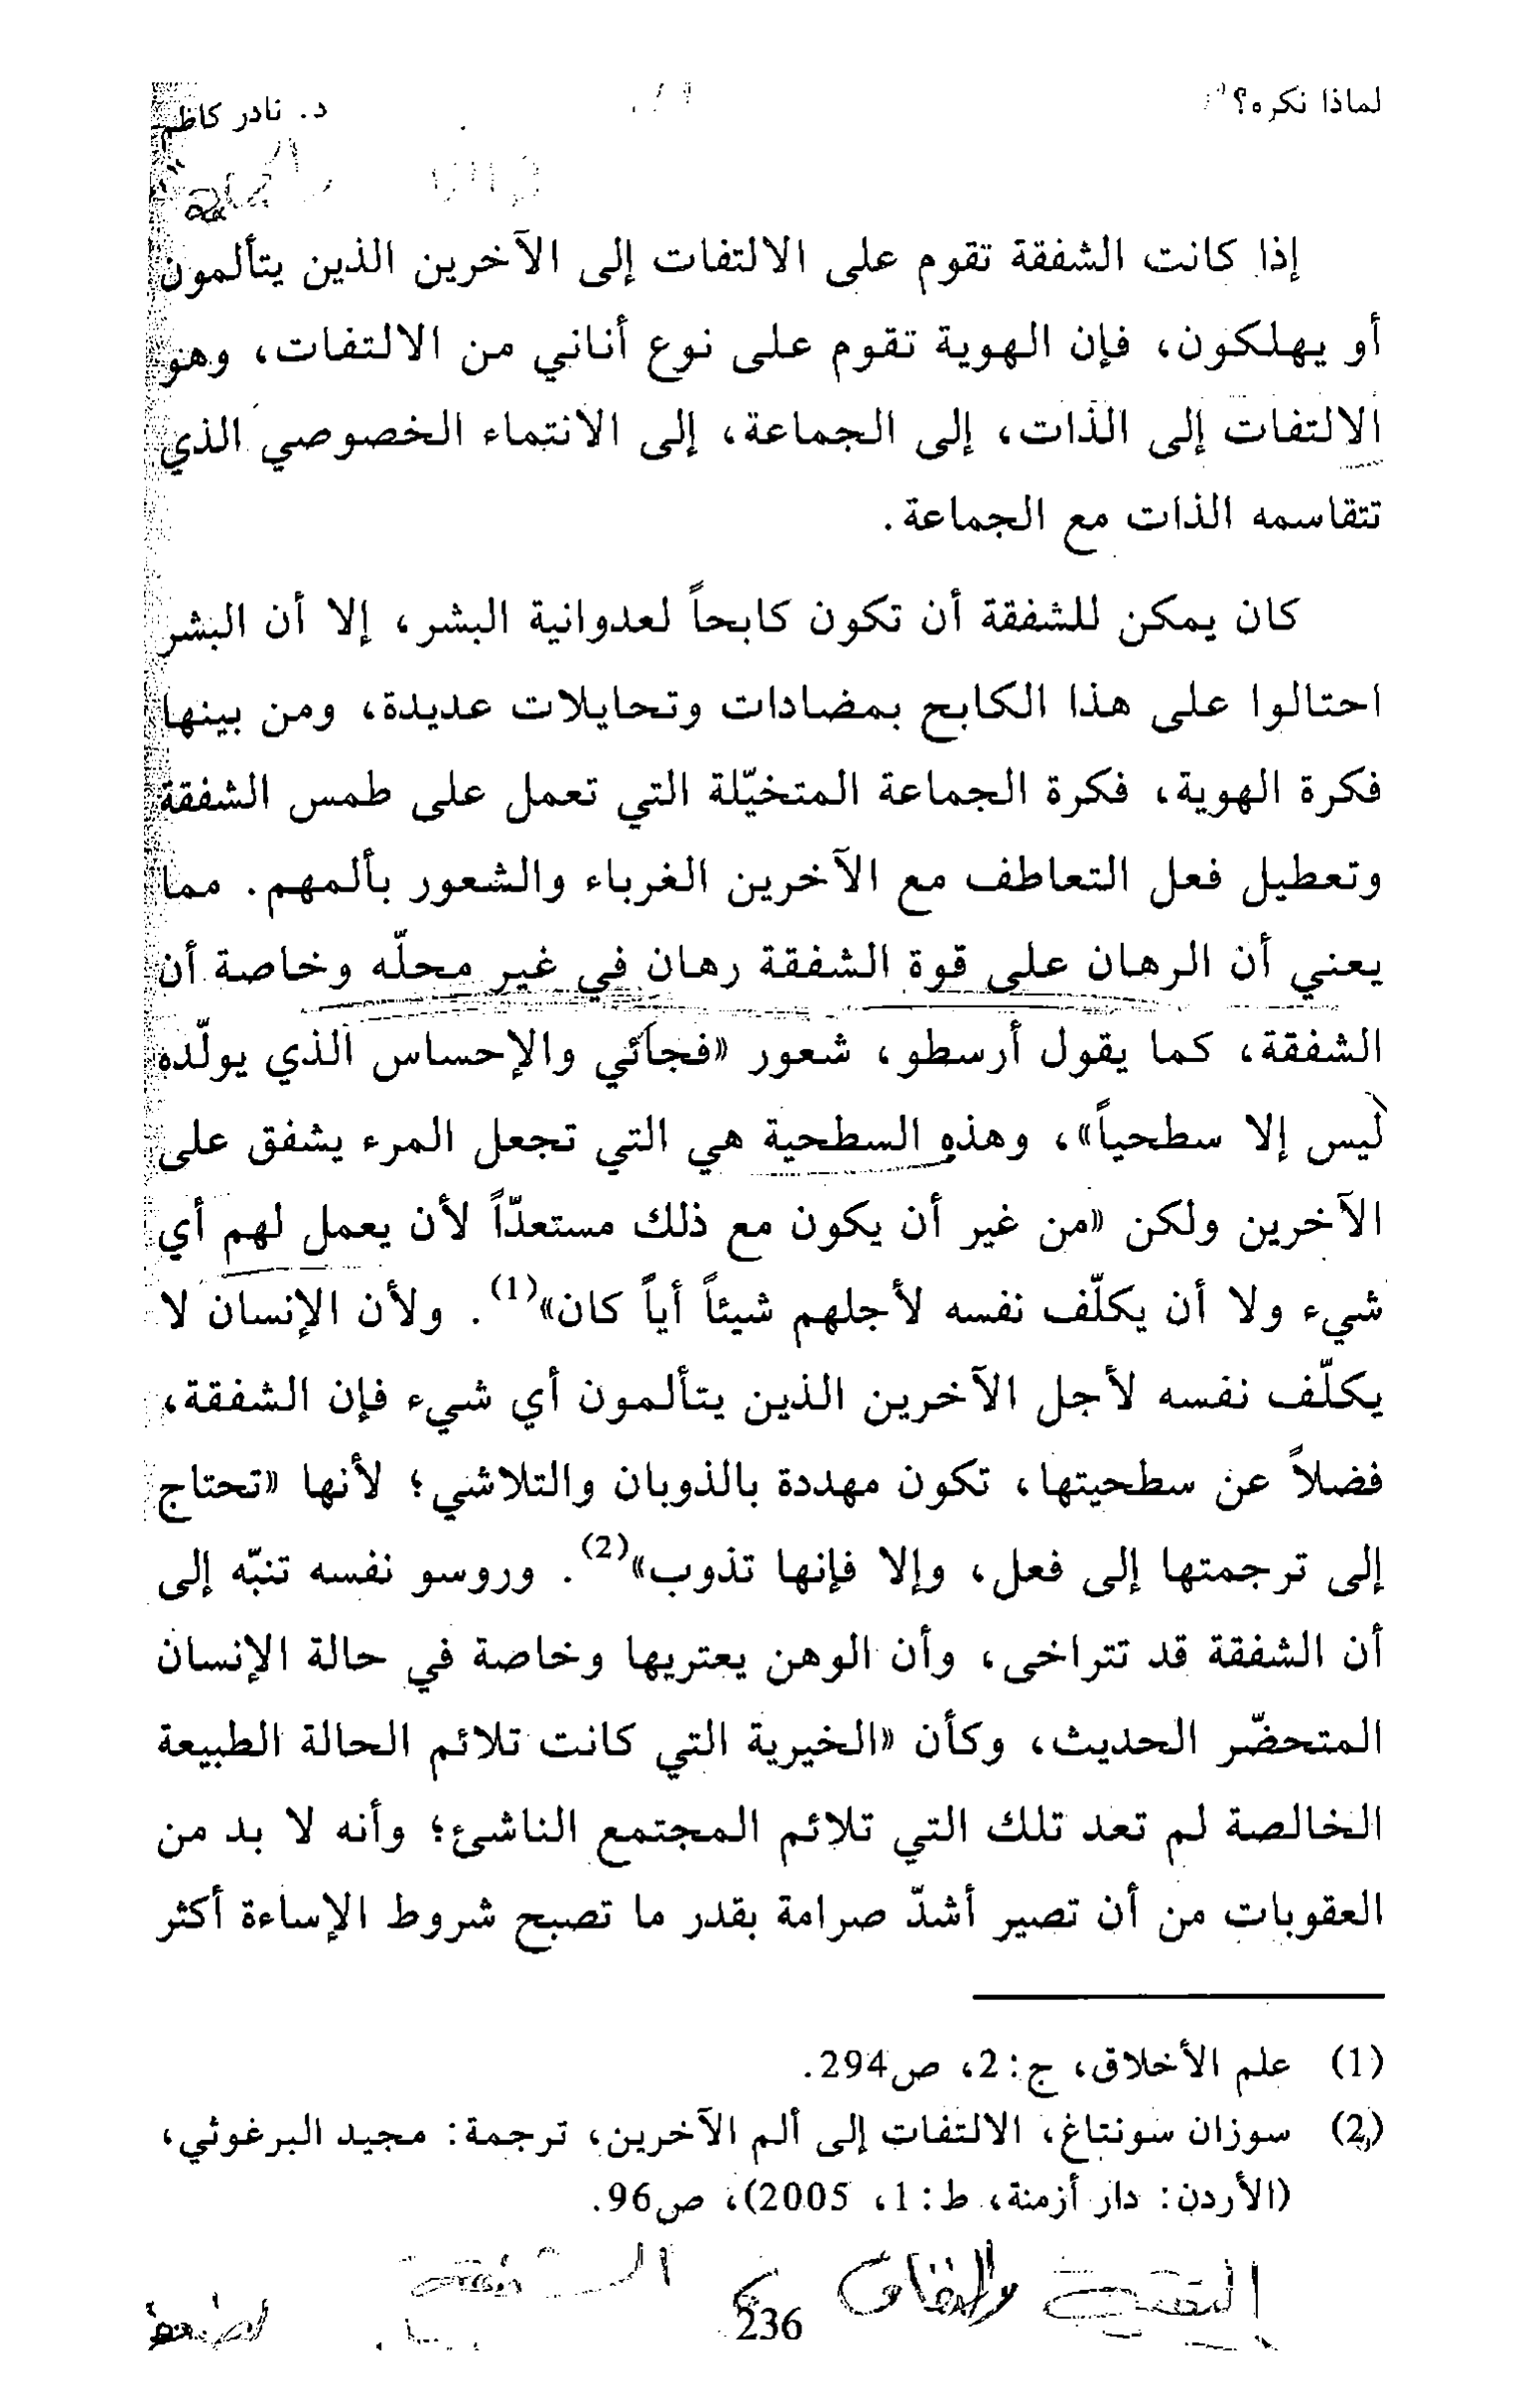 لماذا نكره؟
د. نادر كاظم
إذا كانت الشفقة تقوم على الالتفات إلى الآخرين الذين يتألمون
أو يهلكون، فإن الهوية تقوم على نوع أناني من الالتفات، وهو
الالتفات إلى الذات، إلى الجماعة، إلى الانتماء الخصوصي الذي
تتقاسمه الذات مع الجماعة.
كان يمكن للشفقة أن تكون كابحاً لعدوانية البشر، إلا أن البشر
احتالوا على هذا الكابح بمضادات وتحايلات عديدة، ومن بينها
فكرة الهوية، فكرة الجماعة المتخيّلة التي تعمل على طمس الشفقة
وتعطيل فعل التعاطف مع الآخرين الغرباء والشعور بألمهم. مما
يعني أن الرهان على قوة الشفقة رهان في غير محلّه وخاصة أن
الشفقة، كما يقول أرسطو، شعور «فجائي والإحساس الذي يولّده
ليس إلا سطحياً»، وهذه السطحية هي التي تجعل المرء يشفق على
الآخرين ولكن «من غير أن يكون مع ذلك مستعدّاً لأن يعمل لهم أي
شيء ولا أن يكلّف نفسه لأجلهم شيئاً أياً كان»(1). ولأن الإنسان لا
يكلّف نفسه لأجل الآخرين الذين يتألمون أي شيء فإن الشفقة،
فضلاً عن سطحيتها، تكون مهددة بالذوبان والتلاشي؛ لأنها «تحتاج
إلى ترجمتها إلى فعل، وإلا فإنها تذوب»(2). وروسو نفسه تنبّه إلى
أن الشفقة قد تتراخى، وأن الوهن يعتريها وخاصة في حالة الإنسان
المتحضّر الحديث، وكأن «الخيرية التي كانت تلائم الحالة الطبيعة
الخالصة لم تعد تلك التي تلائم المجتمع الناشئ؛ وأنه لا بد من
العقوبات من أن تصير أشدّ صرامة بقدر ما تصبح شروط الإساءة أكثر
(1) علم الأخلاق، ج:2، ص294.
(2) سوزان سونتاغ، الالتفات إلى ألم الآخرين، ترجمة: مجيد البرغوثي،
(الأردن: دار أزمنة، ط:1، 2005)، ص96.
236